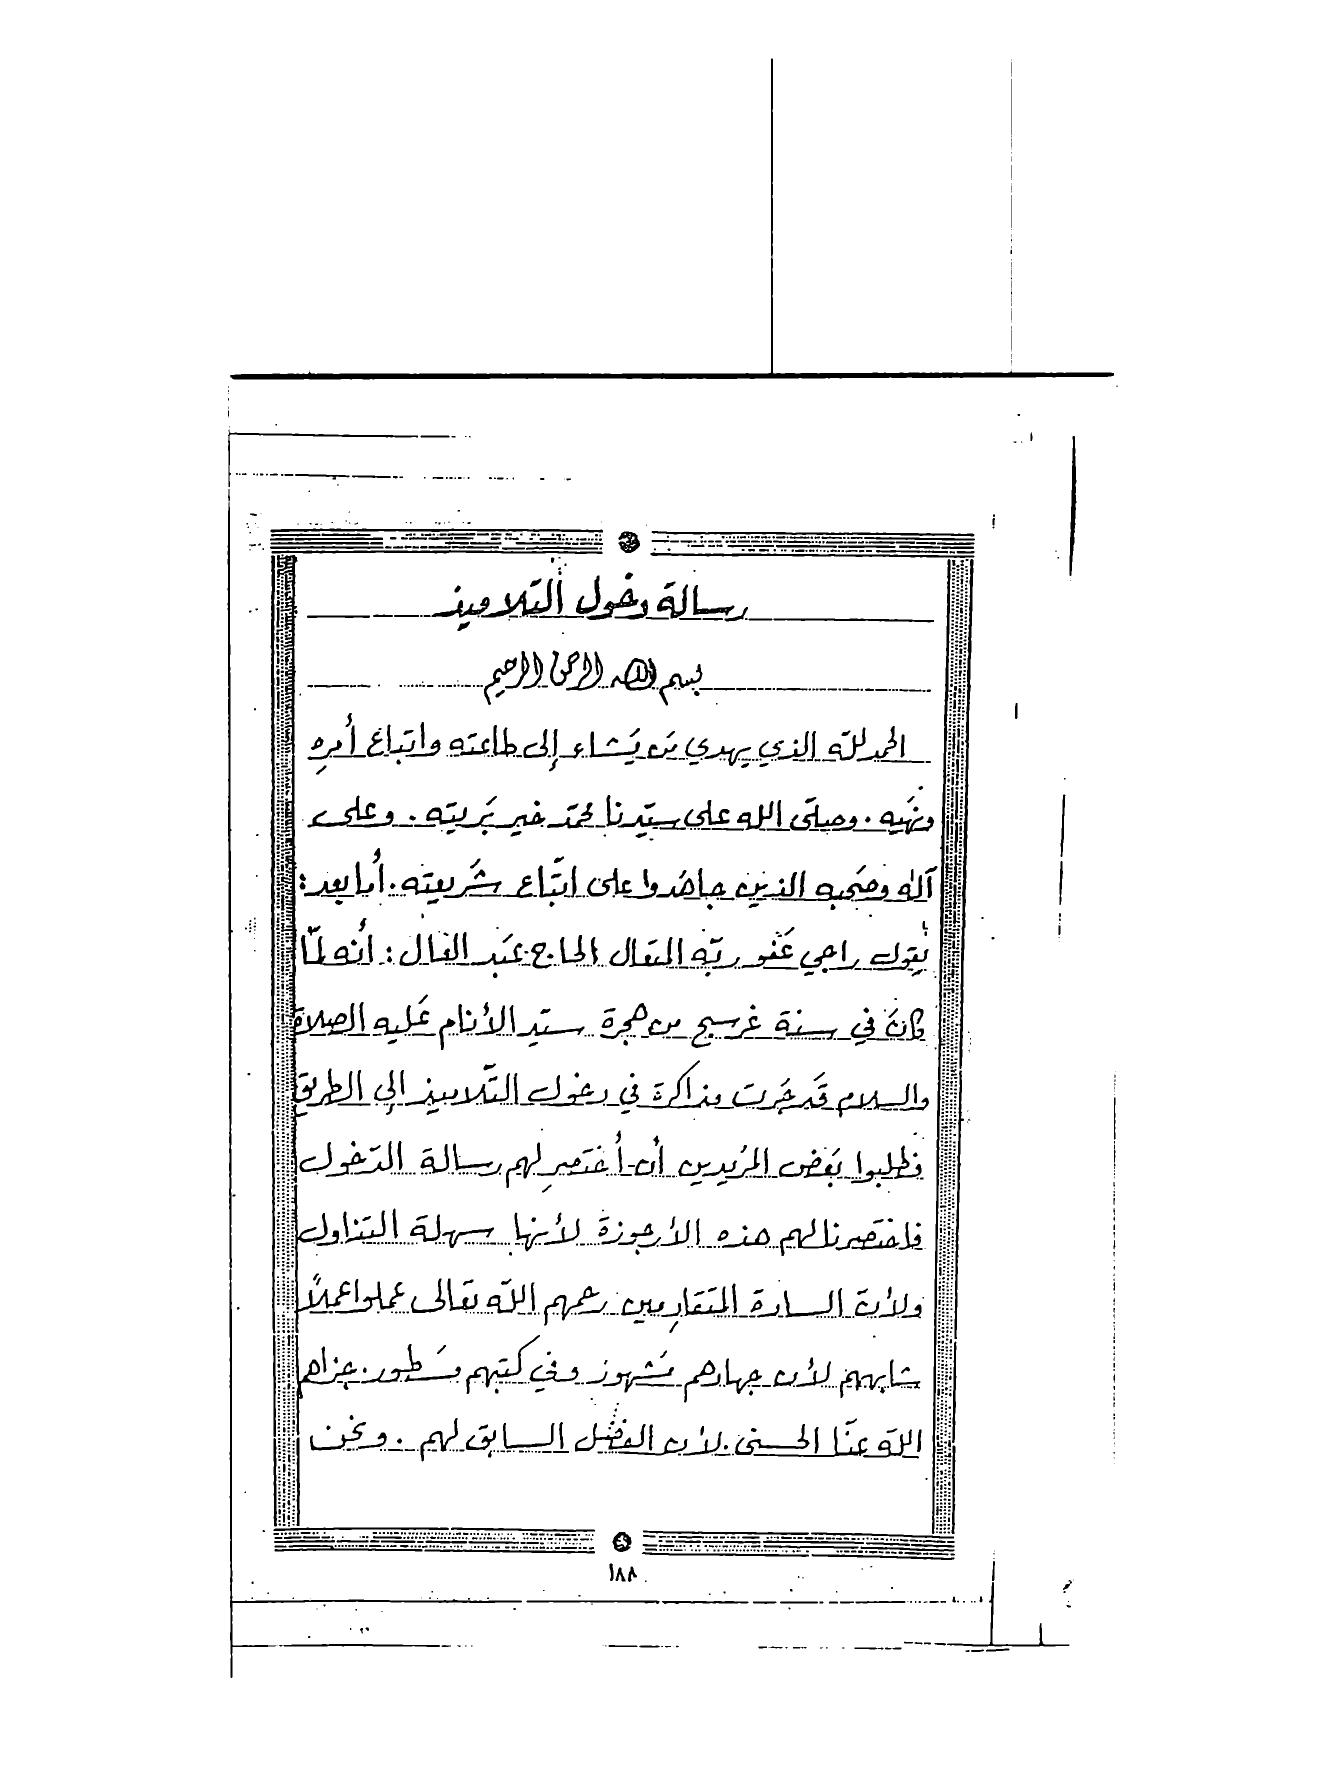 رسالة دخول التلاميذ
بسم الله الرحمن الرحيم
الحمد لله الذي يهدي من يَشاء إلى طاعته واتباع أمرِه
ونهَيه . وصلّى الله على سيّدنا محمّد خير بَريته . وعلى
آله وصَحبه الذين جاهَدوا على اتّباع شَريعته . أما بعد :
يَقول راجي عَفو ربّه المتعال الحاج عَبد الغال : أنه لمّا
كانَ في سنة غرسج من هجرة سيّد الأنام عَليه الصلاة
والسلام قَد جَرت مذاكرة في دخول التّلاميذ إلى الطريق
فطلبوا بَعض المرُيدين أن أختصِر لهم رسالة الدّخول
فاختصرنا لهم هذه الأرجوزة لأنها سهلة التناول
ولأن السادة المتقدمين رحمهم الله تعالى عملوا عملاً
شابههم لأن جهادهم مَشهور وفي كتبهم مسَطور . جزاهم
الله عنّا الحسنى . لأن الفضل السابق لهم . ونحن
١٨٨